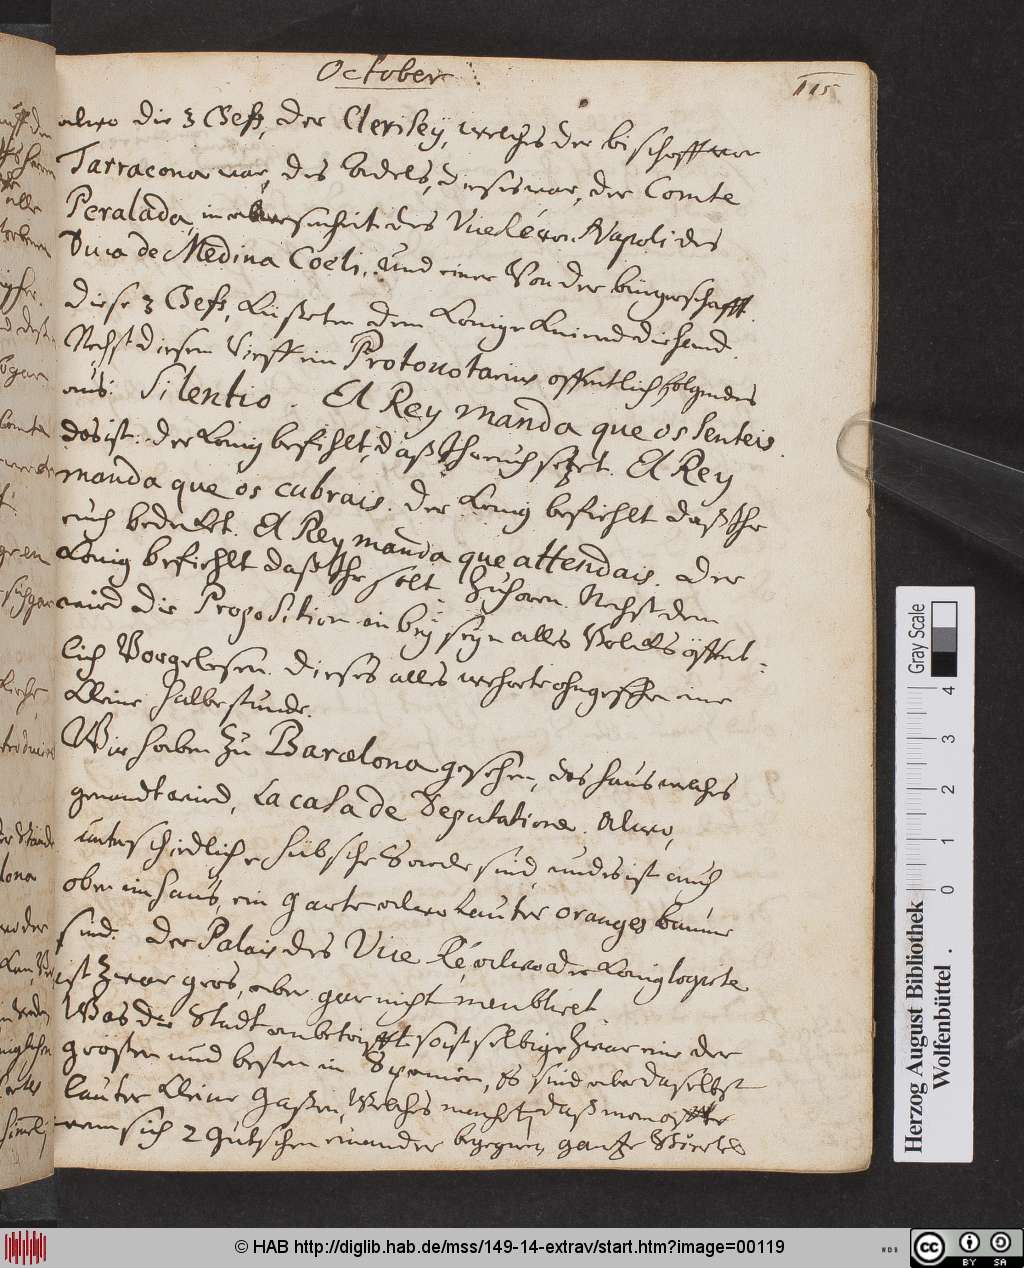 October
115
alwo die 3 Gess, der Clerisey, welches der bischoff von
Tarracona war, des Adels, dieses war, der Comte
Peralada, in abwesenheit des Vice Re von Napoli des
Duca de Medina Coeli, und einer Von der bürgerschafft.
diese 3 Gess, küsseten dem Könige knieend die hand.
Nechst diesem rieff ein Protonotarius offentlich folgendes
aus: Silentio. El Rey manda que os senteis.
das ist: der König befiehlt, daß Ihr euch setzet. El Rey
manda que os cubrais. der König befiehlt daß Ihr
euch bedeckt. El Rey manda que attendais. der
König befiehlt daß Ihr solt zuhören. Nechst dem
wird die Proposition in bey seyn alles Volcks öffent-
lich Vorgelesen. dieses alles wehrete ohngefehr eine
kleine halbe stunde.
Wir haben zu Barcelona gesehen, das haus welches
genandt wird, La casa de Deputatione. Alwo,
unterschiedliche hübsche sind, und es ist auch
oben im haus, ein garte alwo lauter oranges bäume
sind. Der Palais des Vice Ré, alwo der König logirte
ist zwar gros, aber gar nicht meublirt.
Was die Stadt anbetrifft so ist selbige zwar eine der
grosten und besten in Spanien, Es sind aber daselbst
lauter kleine Gaßen, Welches macht, daß man offte
wenn sich 2 gutschen einander begegnen, gantze
Herzog August Bibliothek
Wolfenbüttel
Gray Scale
0 1 2 3 4
© HAB http://diglib.hab.de/mss/149-14-extrav/start.htm?image=00119
cc BY SA